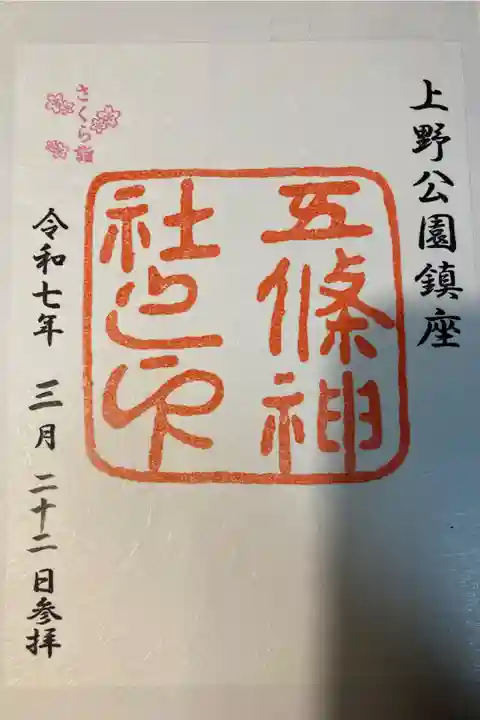 上野公園鎮座
五條神
社之印
さくら詣
令和七年 三月二十二日参拝